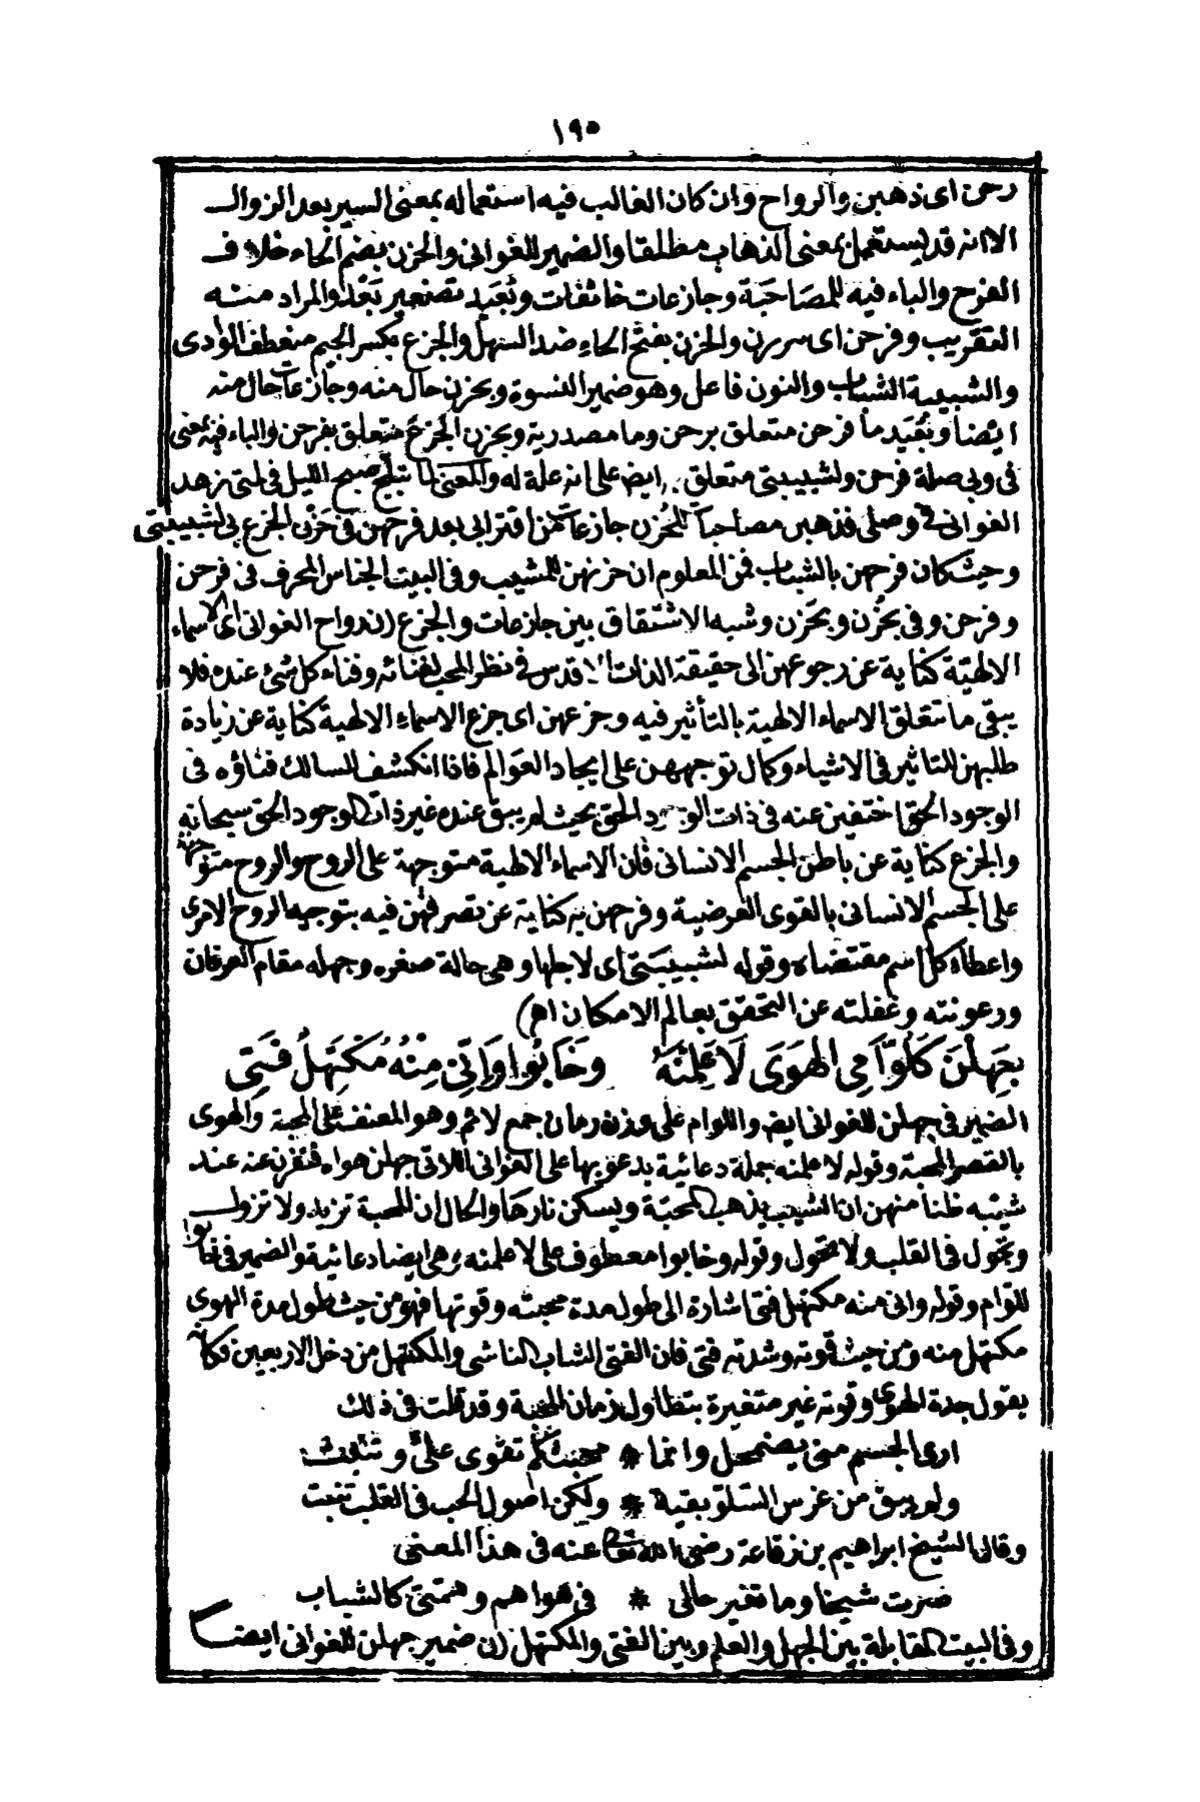 ١٩٥
رحن اى ذهبن والرواح وان كان الغالب فيه استعماله بمعنى السير بعد الزوال
الا انه قد يستعمل بمعنى الذهاب مطلقا والضمير للغوانى والحزن بضم الحاء خلاف
الفرح والباء فيه للمصاحَبَة وجازعات خائفات وبُعَيد تصغير بَعْد والمراد منه
التقريب وفرحن اى سررن والحزن بفتح الحاءِ ضد السهل والجزع بكسر الجيم منعطف الوادى
والشبيبة الشباب والنون فاعل وهو ضمير النسوة وبحزن حال منه وجازعات حال منه
ايضا وبُعَيد ما فرحن متعلق برحن وما مصدرية وبحزن الجزع متعلق بفرحن والباء فيه بمعنى
فى وبى صلة فرحن ولشبيبتى متعلق ايض على انه علة له والمعنى لما تبلج صبح الليل فى لمتى زهد
الغوانى فى وصلى فذهبن مصاحبات للحُزن جازعات من اقترابى بعد فرحهن فى حَزْن الجزع بى لشبيبتى
وحيث كان فرحهن بالشباب فمن المعلوم ان حزنهن للمشيب وفى البيت الجناس المحرف فى فرحن
وفرحن وفى بحُزن وبحَزن وشبه الاشتقاق بين جازعات والجزع (ن رواح الغوانى اى الاسماء
الالهيّة كناية عن رجوعهن الى حقيقة الذات الاقدس فى نظر المحب لفنائه وفناء كل شئ عنده فلا
يبقى ما تتعلق الاسماء الالهية بالتأثير فيه وجزعهن اى جزع الاسماءِ الالهية كناية عن زيادة
طلبهن للتاثير فى الاشياء وكمال توجههن على ايجاد العَوالم فاذا انكشف للسالك فناؤه فى
الوجود الحق اختفين عنه فى ذات الوجود الحق بحيث لم يبق عنده غير ذات الوجود الحق سبحانه
والجزع كناية عن باطن الجسم الانسانى فان الاسماء الالهية متوجهة على الروح والروح متوجهة
على الجسم الانسانى بالقوى العرضية وفرحهن به كناية عن تصرفهن فيه بتوجيه الروح الامرى
واعطاء كل اسم مقتضاه وقوله لشبيبتى اى لاجلها وهى حالة صغره وجهله مقام العرفان
ورعونته وغفلته عن التحقق بعالم الامكان اه‍)
بجَهِلْنَ كَلُوَّامِى الهَوَى لَا عَلِمْنَهُ وَخَابُوا وَاِنِّى مِنْهُ مُكْتَهِلُ فَتِى
الضمير فى جهلن للغوانى ايض واللوام على وزن رمان جمع لائم وهو المعنف على المحبة والهوى
بالقصر المحبة وقوله لا علمنه جملة دعائية يدعو بها على الغوانى اللاتى جهلن هواه فنفرن عنه عند
شيبه ظنا منهن ان الشيب يذهب المحبّة ويسكن نارها والحال ان المحبة تزيد ولا تزول
وتجول فى القلب ولا تتحول وقوله وخابوا معطوف على لا علمنه وهى ايضا دعائية والضمير فى خابوا
للوّام وقوله وانى منه مكتهل فتى اشارة الى طول مدة محبته وقوتها فهو من حيث طول مدة الهوى
مكتهل منه ومن حيث قوته وشدته فتى فان الفتى الشاب الناشى والمكتهل من دخل الاربعين فكأنه
يقول جدة الهوى وقوته غير متغيرة بتطاول زمان المحبة وقد قلت فى ذلك
ارى الجسم منى يضمحل وانما * محبتكم تقوى علىّ وتثبت
ولم يبق من غرس السّلو بقية * ولكن اصول الحب فى القلب تنبت
وقال الشيخ ابراهيم بن زقاعة رضى الله تعالى عنه فى هذا المعنى
صرت شيخا وما تغير حالى * فى هواهم وهمتى كالشباب
وفى البيت المقابلة بين الجهل والعلم وبين الفتى والمكتهل (ن ضمير جهلن للغوانى ايضا